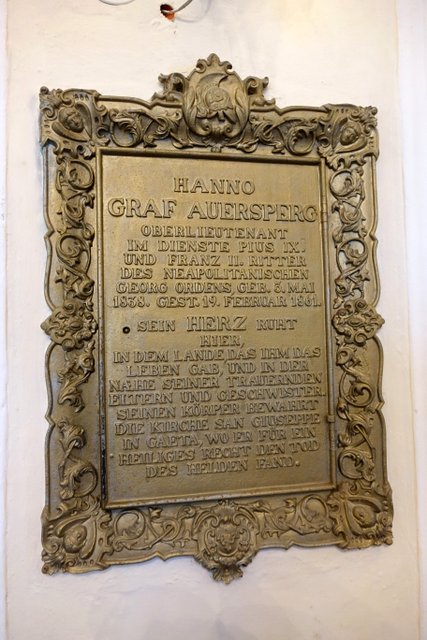 HANNO
GRAF AUERSPERG
OBERLIEUTENANT
IM DIENSTE PIUS IX.
UND FRANZ II. RITTER
DES NEAPOLITANISCHEN
GEORG ORDENS, GEB. 3. MAI
1838. GEST. 19. FEBRUAR 1861.
SEIN HERZ RUHT
HIER,
IN DEM LANDE, DAS IHM DAS
LEBEN GAB, UND IN DER
NÄHE SEINER TRAUERNDEN
ELTERN UND GESCHWISTER.
SEINEN KÖRPER BEWAHRT
DIE KIRCHE SAN GIUSEPPE
IN GAETA, WO ER FÜR EIN
HEILIGES RECHT DEN TOD
DES HELDEN FAND.